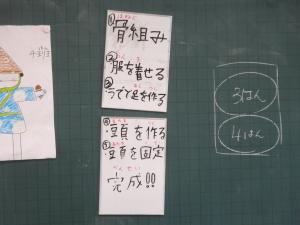 4-3班
①骨組み
②服を着せる
③うでと足を作る
④頭を作る
⑤頭を固定
かんせい
完成!!
3はん
4はん